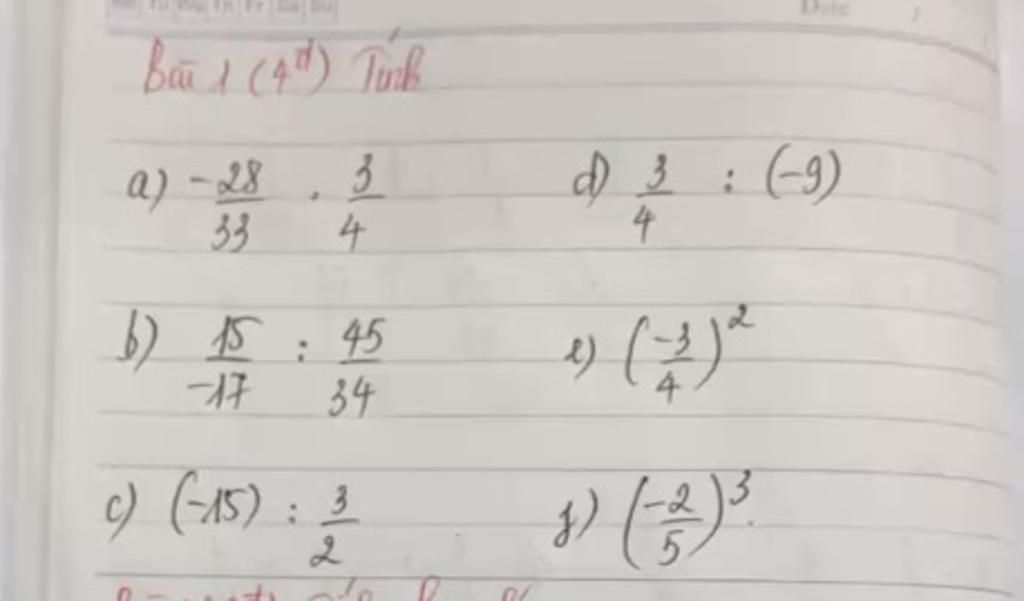 Date
Bài 1 (4đ) Tính
a) -28/33 . 3/4
d) 3/4 : (-9)
b) 15/-17 : 45/34
e) (-3/4)²
c) (-15) : 3/2
f) (-2/5)³